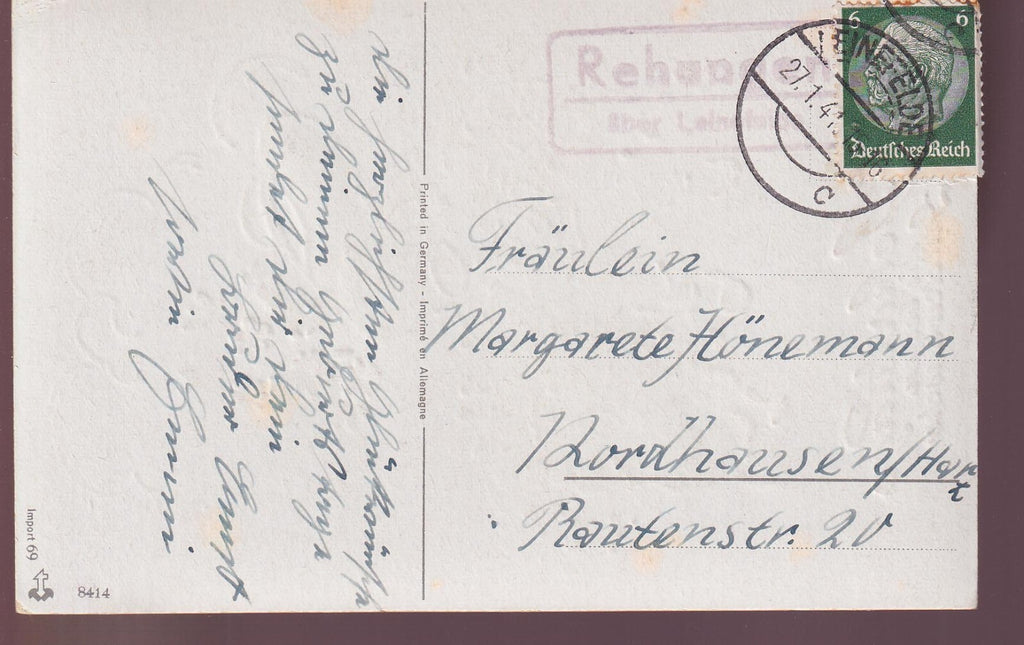 Die herzlichsten Glückwünsche
zu deinem Geburtstage
sendet dir dein
Printed in Germany - Imprimé en Allemagne
Import 69
8414
Rehungen
über Leinefelde
LEINEFELDE
27.1.41
c
6 6
Deutsches Reich
Fräulein
Margarete Hönemann
Nordhausen/Harz
Rautenstr. 20